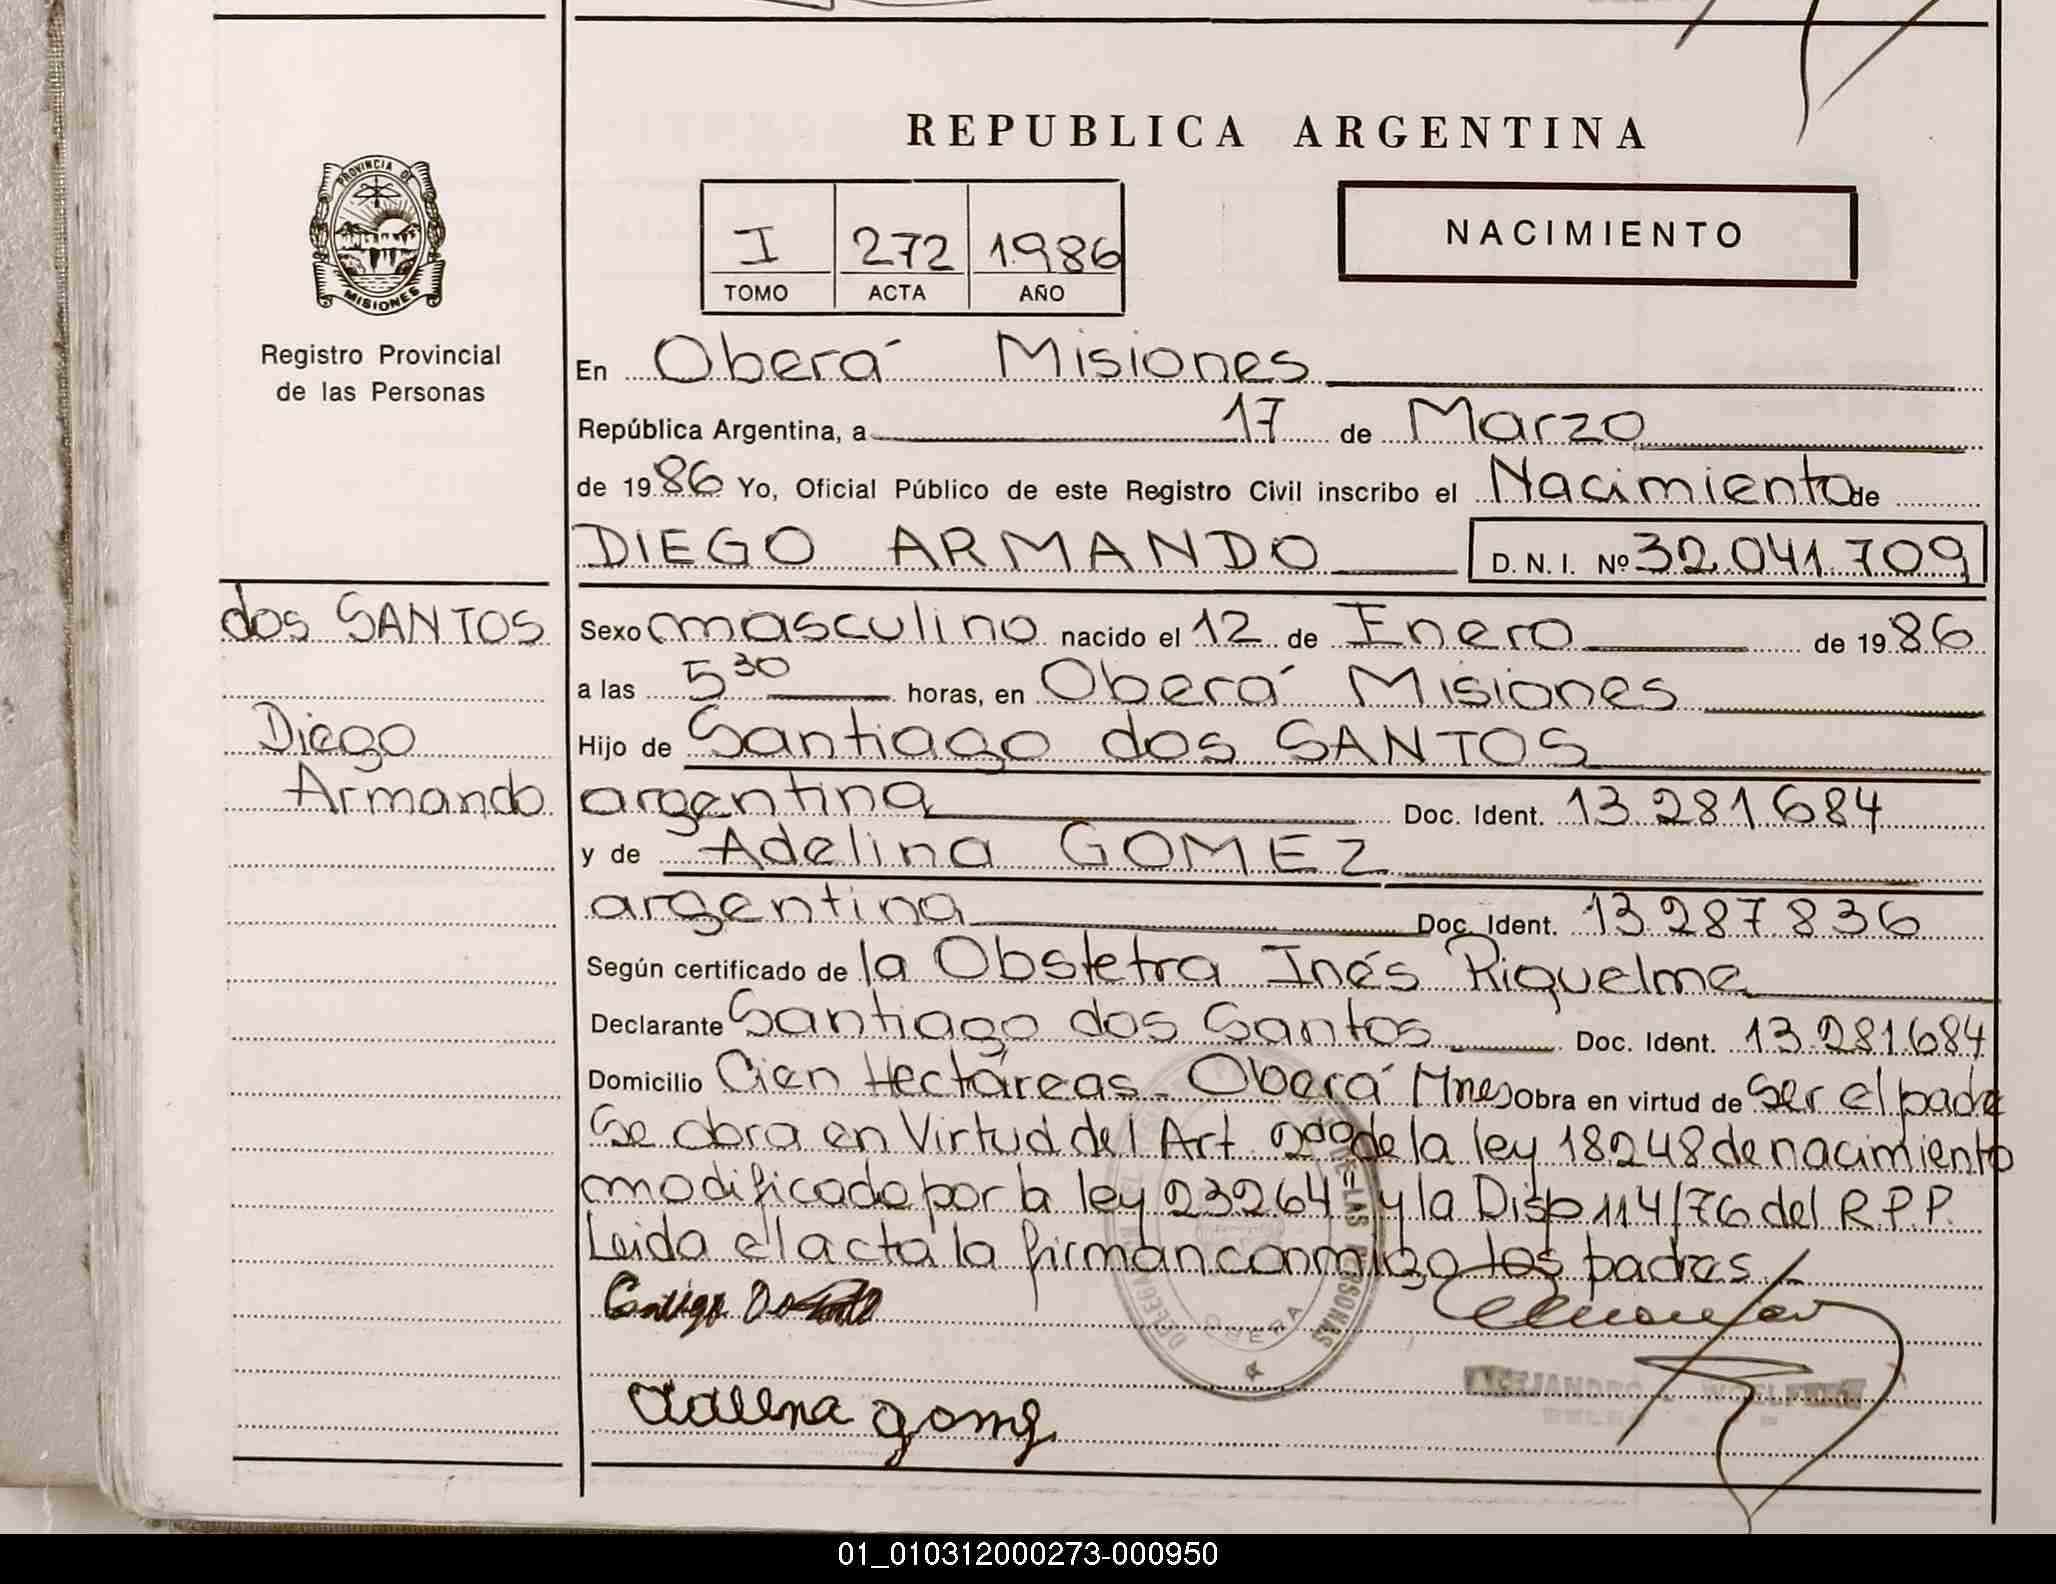 REPUBLICA ARGENTINA
PROVINCIA DE
MISIONES
Registro Provincial
de las Personas
I 272 1986
TOMO ACTA AÑO
NACIMIENTO
En Oberá Misiones
República Argentina, a 17 de Marzo
de 1986 Yo, Oficial Público de este Registro Civil inscribo el Nacimiento de
DIEGO ARMANDO D. N. I. Nº 32.041.709
dos SANTOS
Diego
Armando
Sexo masculino nacido el 12 de Enero de 1986
a las 5 30 horas, en Oberá Misiones
Hijo de Santiago dos SANTOS
argentina Doc. Ident. 13.281684
y de Adelina GOMEZ
argentina Doc. Ident. 13.287.836
Según certificado de la Obstetra Inés Riquelme
Declarante Santiago dos Santos Doc. Ident. 13.281.684
Domicilio Cien Hectáreas - Oberá Mnes Obra en virtud de ser el padre
Se obra en Virtud del Art. 2do de la ley 18248 de nacimiento
modificado por la ley 23264" y la Disp 114/76 del R.P.P.
Leida el acta la firman conmigo los padres
DELEG LAS PERSONAS
OBERA
Adelina gomez
ALEJANDRO
01_010312000273-000950